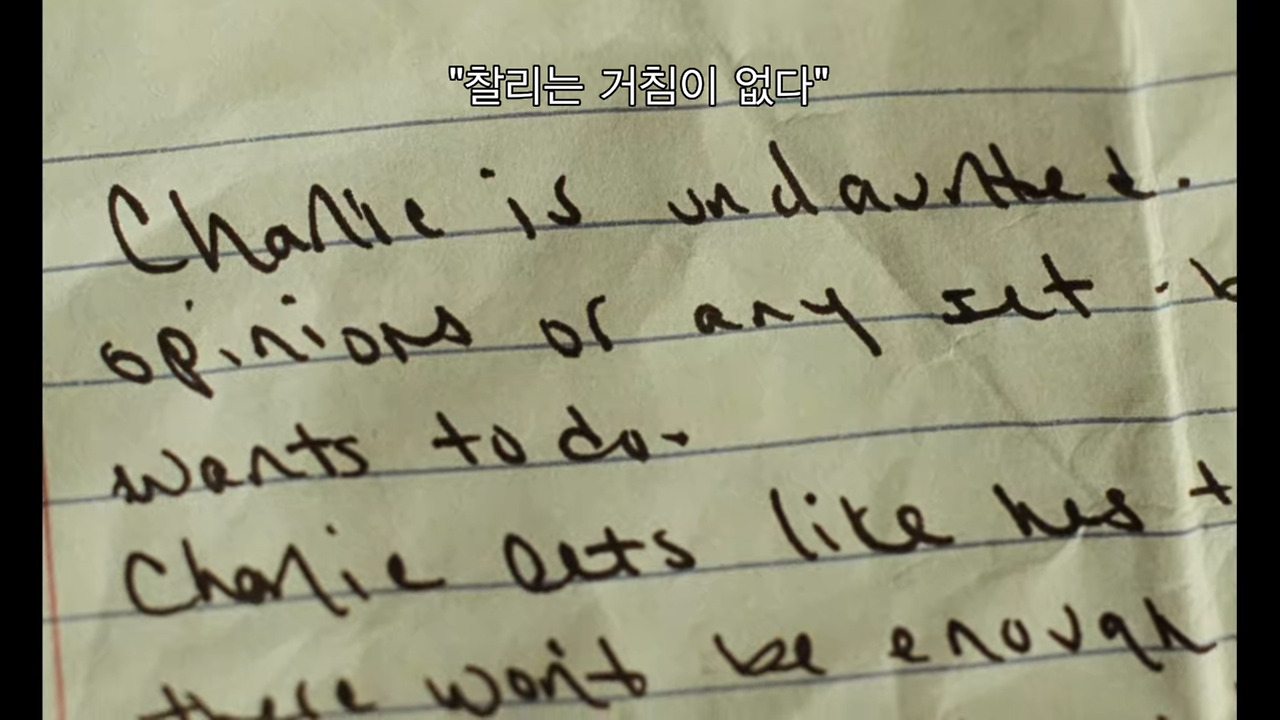 "찰리는 거침이 없다"
Charlie is undaunted.
opinions or any set-b
wants to do.
Charlie acts like hes t
there won't be enough